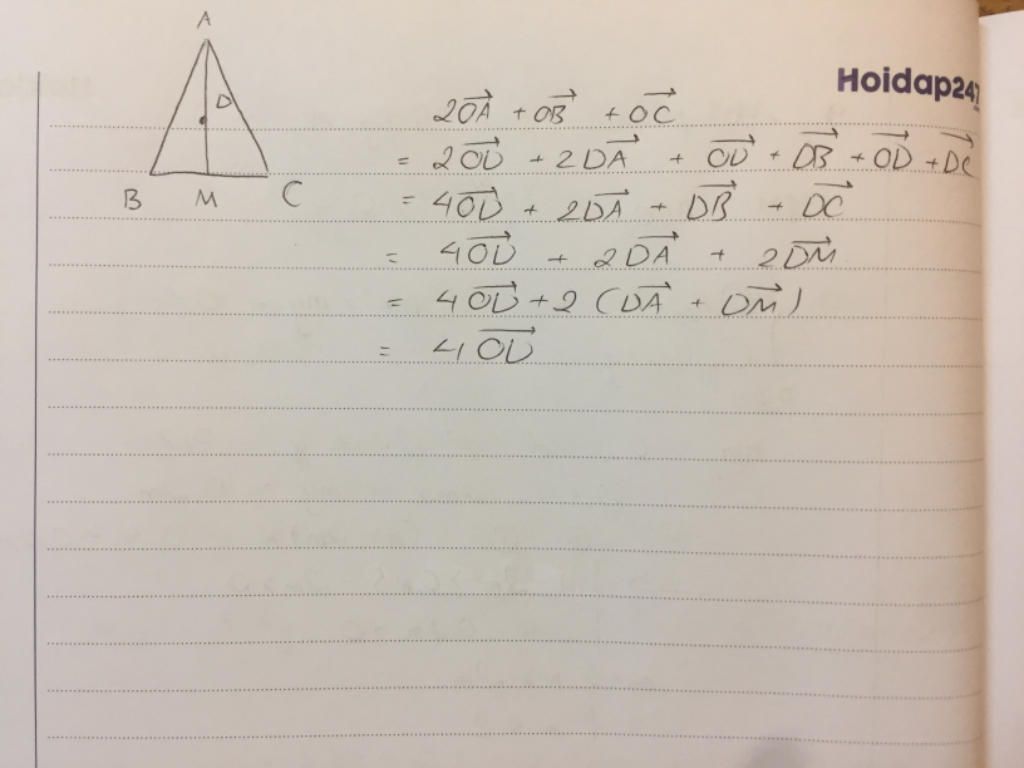 A
Hoidap247
D
2\overrightarrow{OA} + \overrightarrow{OB} + \overrightarrow{OC}
= 2\overrightarrow{OD} + 2\overrightarrow{DA} + \overrightarrow{OD} + \overrightarrow{DB} + \overrightarrow{OD} + \overrightarrow{DC}
B M C
= 4\overrightarrow{OD} + 2\overrightarrow{DA} + \overrightarrow{DB} + \overrightarrow{DC}
= 4\overrightarrow{OD} + 2\overrightarrow{DA} + 2\overrightarrow{DM}
= 4\overrightarrow{OD} + 2(\overrightarrow{DA} + \overrightarrow{DM})
= 4\overrightarrow{OD}